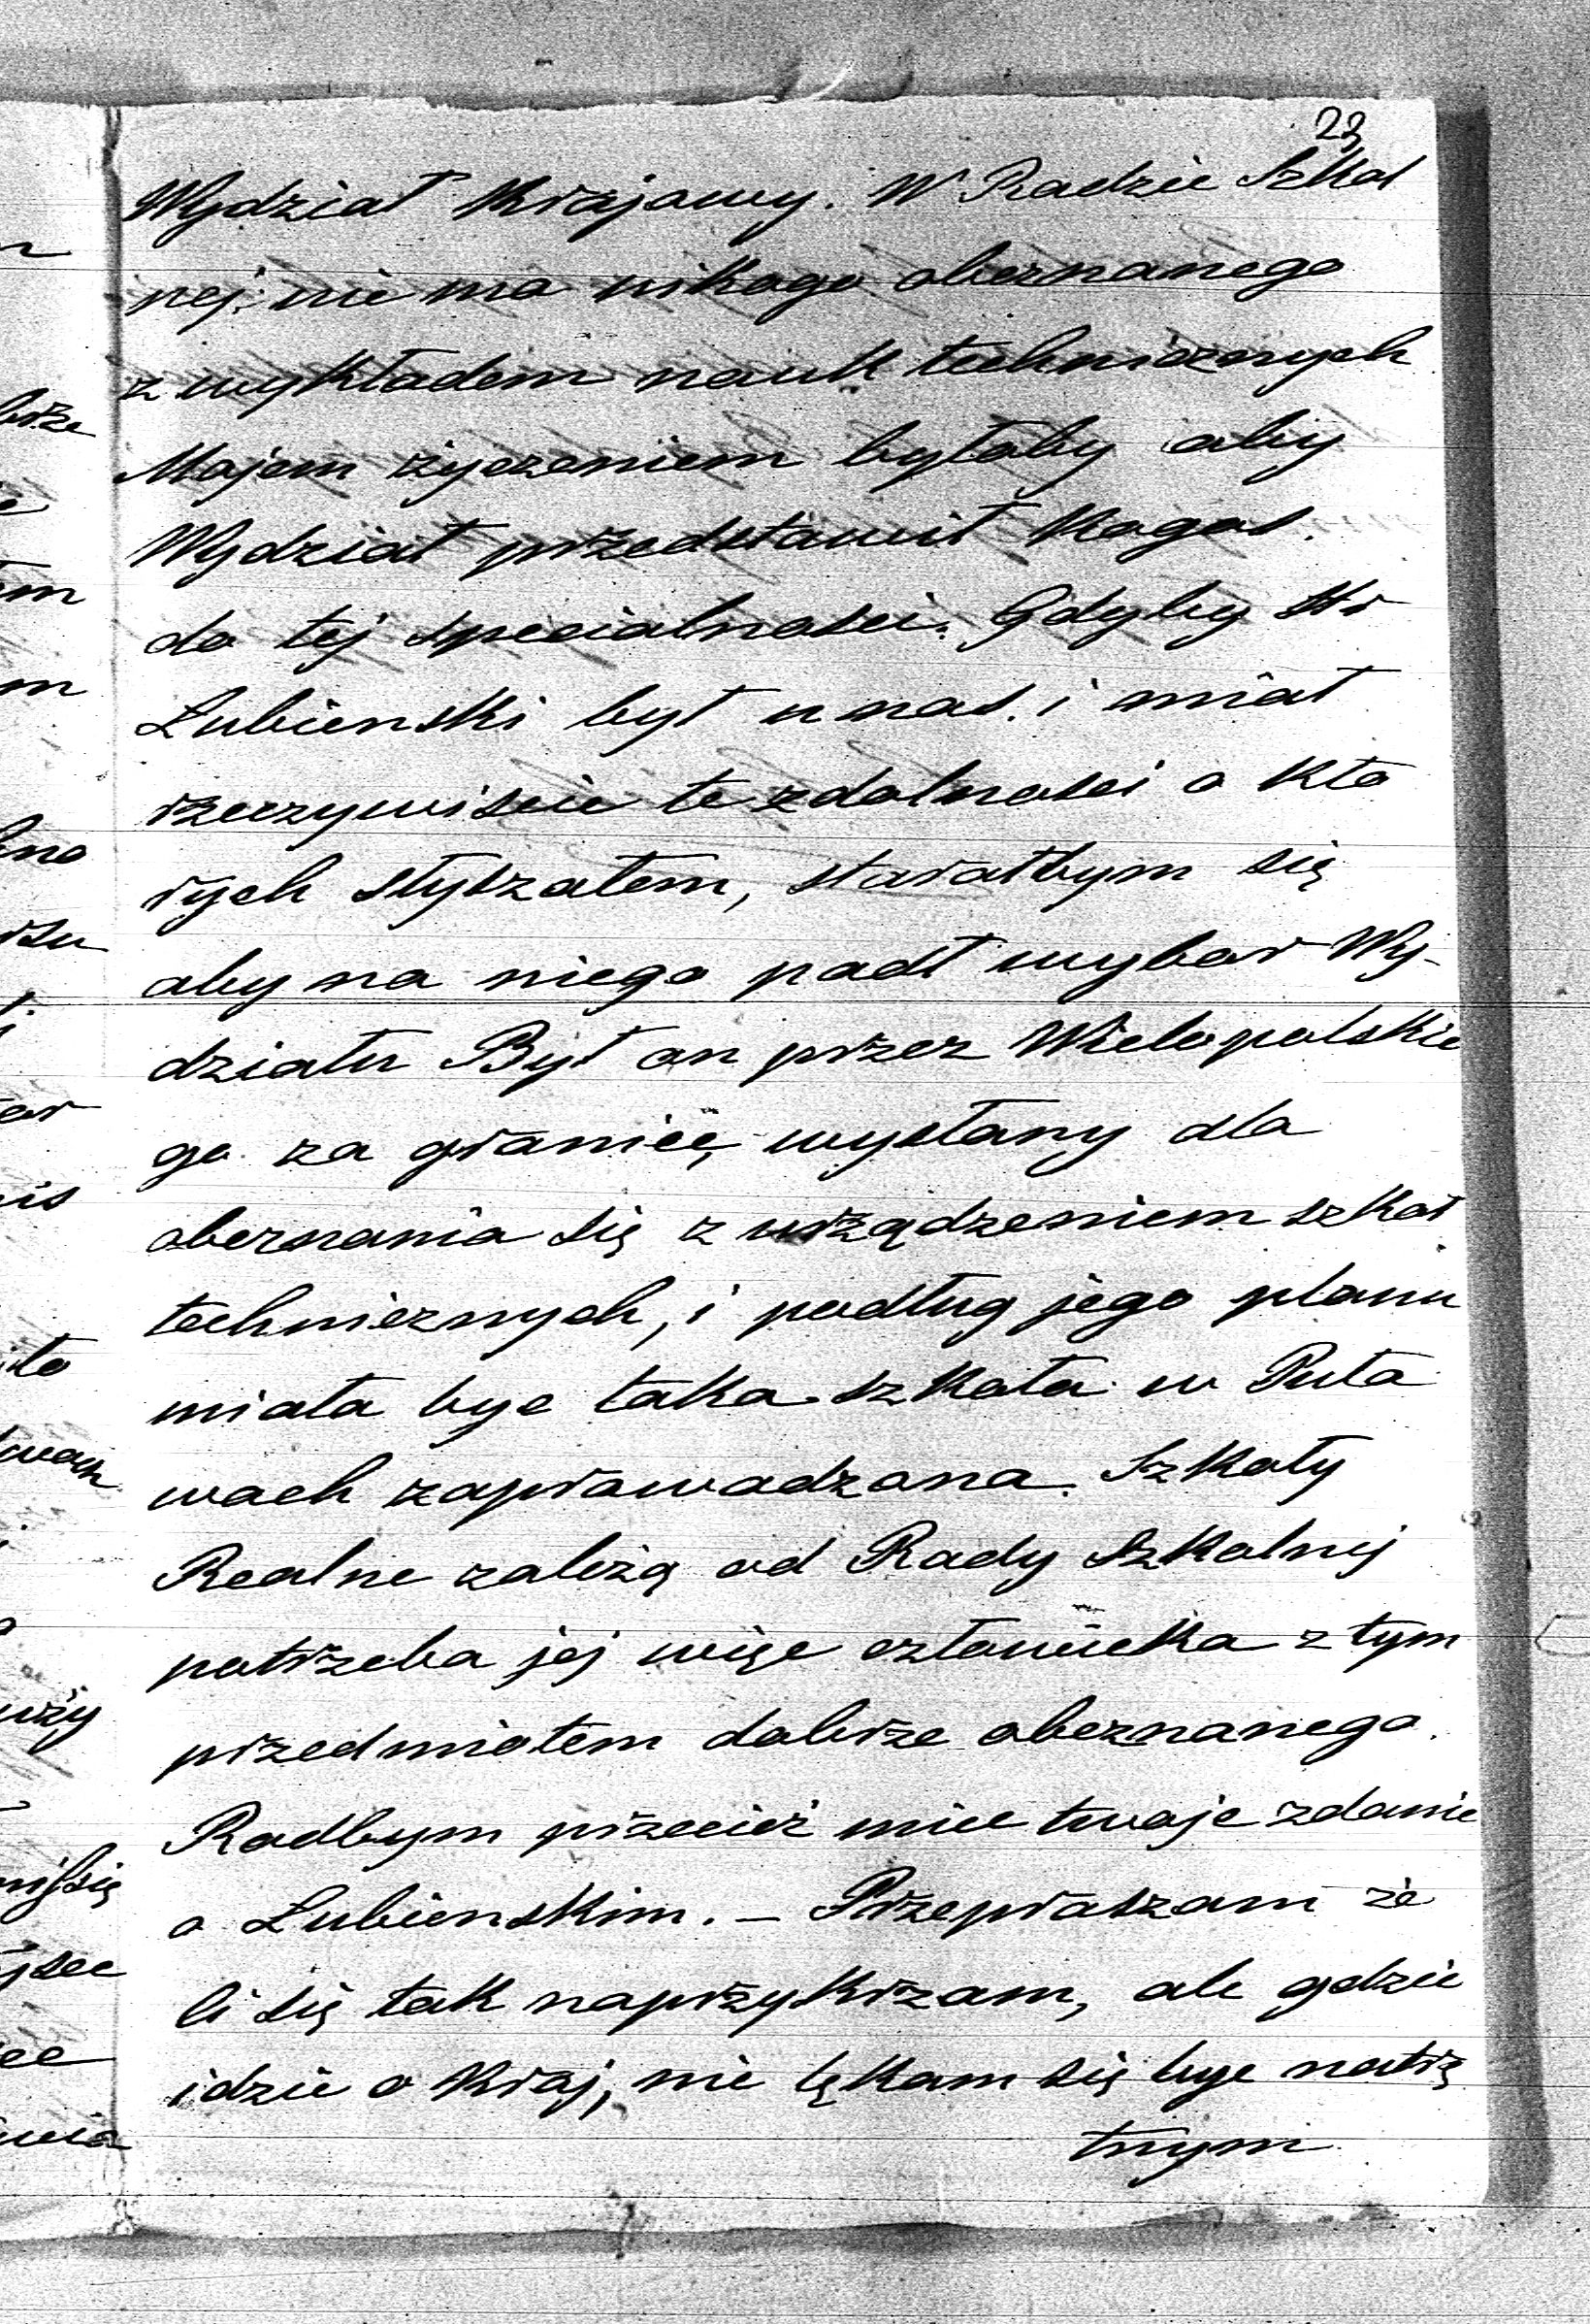 23
Wydział Krajowy. W Radzie Szkol
nej nie ma nikogo obeznanego
z wykładem nauk technicznych
Mojem życzeniem byłoby aby
Wydział przedstawił kogoś.
do tej specialności. Gdyby Hr
Łubienski był u nas. i miał
rzeczywiscie te zdolnosci o kto
rych słyszałem, starałbym się
aby na niego padł wybor Wy-
działu Był on przez Wielopolskie
go za granicę wysłany dla
obeznania się z urządzeniem szkoł
technicznych, i podług jego planu
miała byc taka szkoła w Puła
wach zaprowadzona. Szkoły
Realne zależą od Rady Szkolnej
potrzeba jej więc człowieka z tym
przedmiotem dobrze obeznanego.
Radbym przecież miec twoje zdanie
o Łubienskim. – Przepraszam że
ci się tak naprzykrzam, ale gdzie
idzie o kraj, nie lękam się byc natrę
tnym